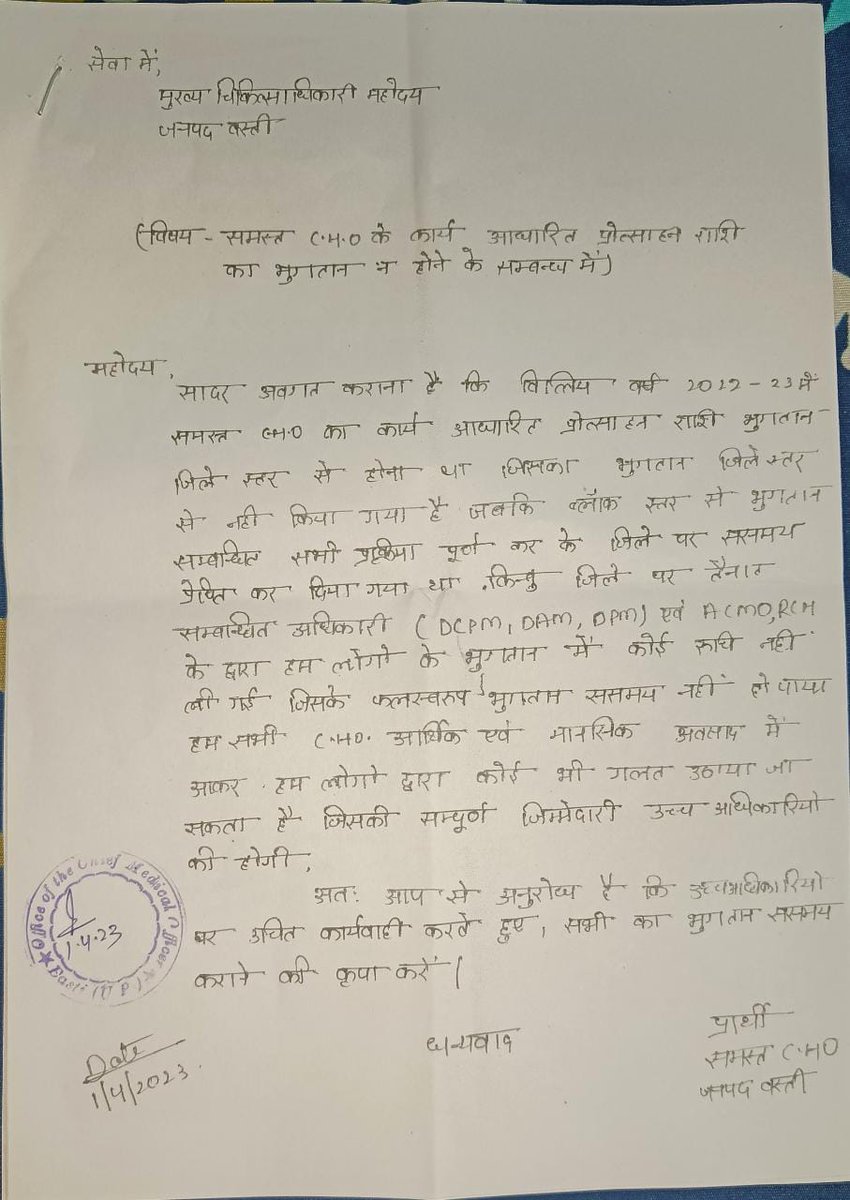 सेवा में,
मुख्य चिकित्साधिकारी महोदय
जनपद बस्ती
(विषय - समस्त C.H.O के कार्य आधारित प्रोत्साहन राशि
का भुगतान न होने के सम्बन्ध में)
महोदय,
सादर अवगत कराना है कि वित्तिय वर्ष 2022-23 में
समस्त C.H.O का कार्य आधारित प्रोत्साहन राशि भुगतान
जिले स्तर से होना था जिसका भुगतान जिले स्तर
से नही किया गया है जबकि ब्लॉक स्तर से भुगतान
सम्बन्धित सभी प्रक्रिया पूर्ण कर के जिले पर ससमय
प्रेषित कर दिया गया था किन्तु जिले पर तैनात
सम्बन्धित अधिकारी (DCPM, DAM, DPM) एवं ACMO,RCH
के द्वारा हम लोगो के भुगतान में कोई रुचि नहीं
ली गई जिसके फलस्वरुप भुगतान ससमय नहीं हो पाया
हम सभी C.HO. आर्थिक एवं मानसिक अवसाद में
आकर हम लोगो द्वारा कोई भी गलत उठाया जा
सकता है जिसकी सम्पूर्ण जिम्मेदारी उच्च अधिकारियो
की होगी,
अतः आप से अनुरोध है कि उच्चअधिकारियो
पर उचित कार्यवाही करते हुए, सभी का भुगतान ससमय
कराने की कृपा करें |
Office of the Chief Medical Officer
Basti (U P)
1.4.23
धन्यवाद
Date
1/4/2023.
प्रार्थी
समस्त C.HO
जनपद बस्ती